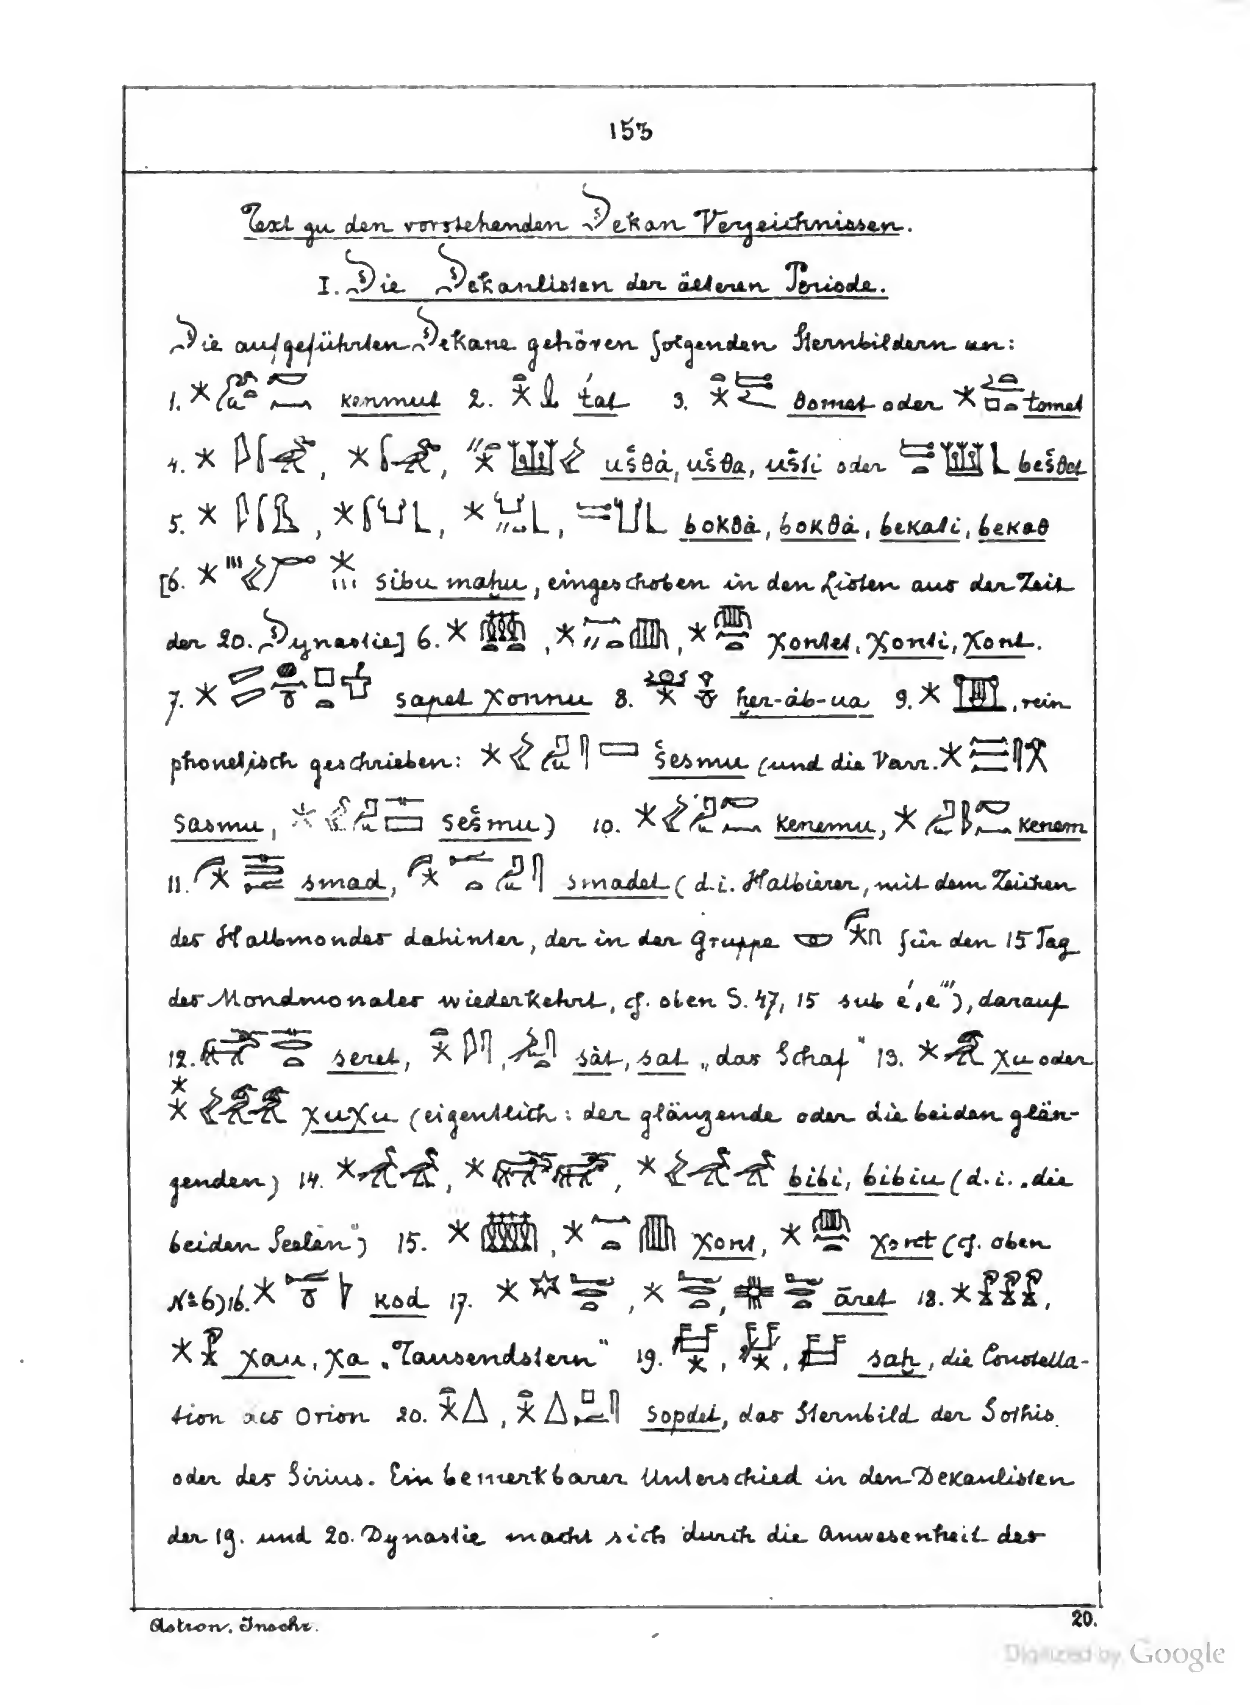 153
Text zu den vorstehenden Dekan Verzeichnissen.
I. Die Dekanlisten der älteren Periode.
Die aufgeführten Dekane gehören folgenden Sternbildern an:
1. kenmut 2. tat 3. ϑomet oder tomet
4. uśϑȧ, uśϑa, uśti oder beśϑet
5. bokϑȧ, bokϑȧ, bekati, bekaϑ
[6. sibu maḥu, eingeschoben in den Listen aus der Zeit
der 20. Dynastie] 6. χontet, χonti, χont.
7. sapet χonnu 8. ḥer-ȧb-ua 9. , rein
phonetisch geschrieben: śesmu (und die Varr.
sasmu, seśmu) 10. kenemu, kenem
11. smad, smadet (d.i. Halbierer, mit dem Zeichen
des Halbmondes dahinter, der in der Gruppe für den 15 Tag
des Mondmonates wiederkehrt, cf. oben S. 47, 15 sub e', e'''), darauf
12. seret, sȧt, sat „das Schaf" 13. χu oder
χuχu (eigentlich: der glänzende oder die beiden glän-
zenden) 14. bibi, bibiu (d.i. „die
beiden Seelen") 15. χont, χont (cf. oben
No 6) 16. kod 17. āret 18.
χau, χa „Tausendstern" 19. saḥ, die Constella-
tion des Orion 20. sopdet, das Sternbild der Sothis
oder des Sirius. Ein bemerkbarer Unterschied in den Dekanlisten
der 19. und 20. Dynastie macht sich durch die Anwesenheit des
Astron. Inschr. 20.
Digitized by Google